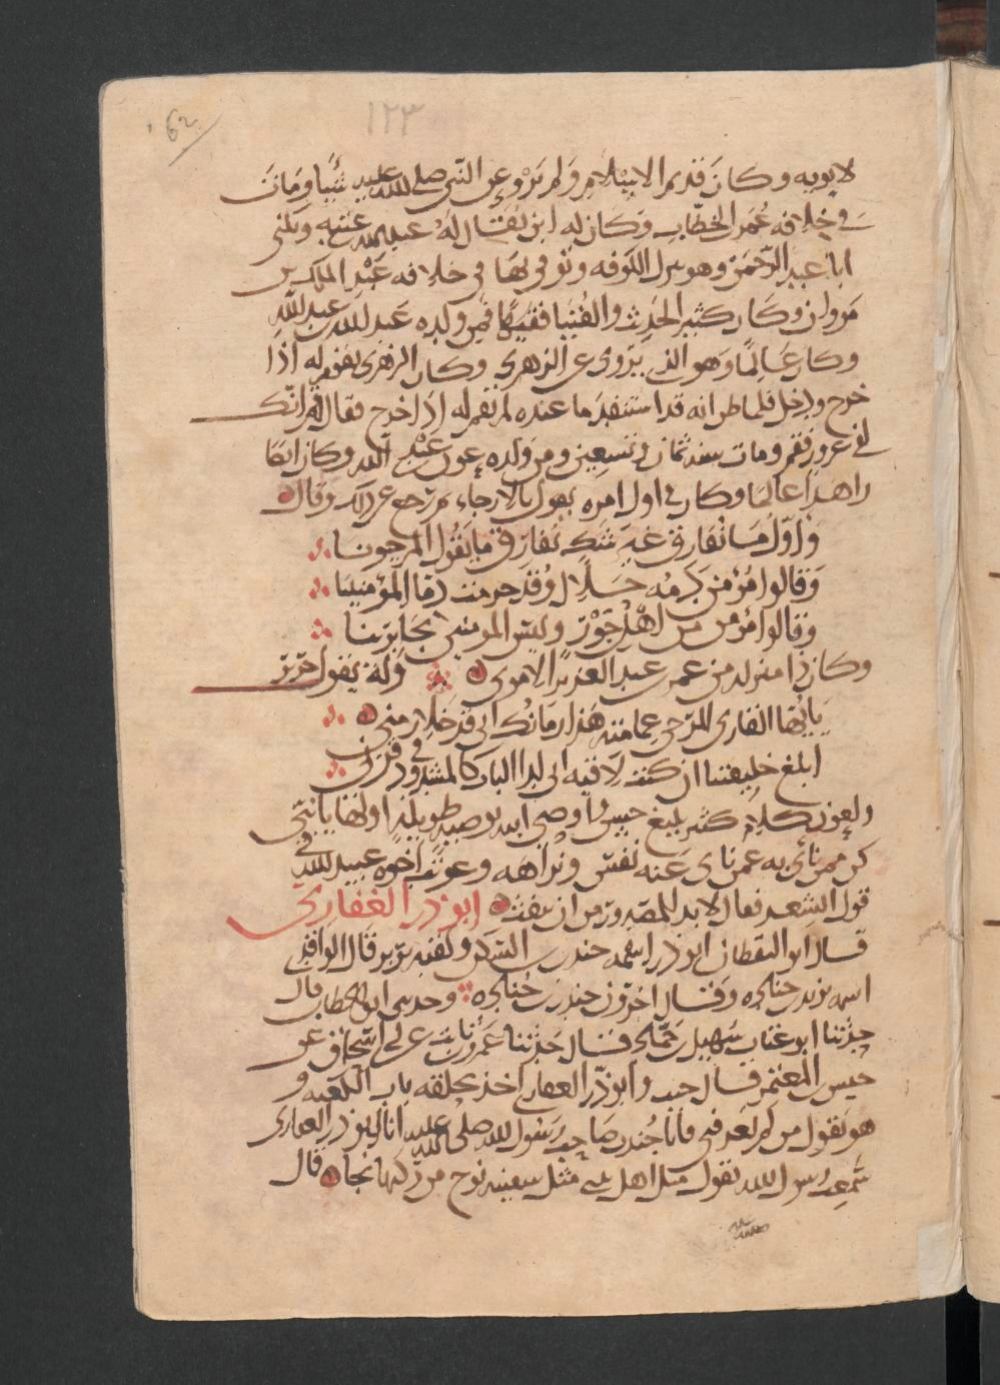 62
١٢٣
لابويه وكان قديم الاسلام ولم يرو عن النبي صلى الله عليه شيا ومات
في خلافه عمر بن الخطاب وكان له ابن يقال له عبد الله بن عتبه ويكنى
ابا عبد الرحمن وهو نزل الكوفه وتوفي بها في خلافه عبد الملك بن
مروان وكان كثير الحديث والفتيا فقيها فمن ولده عبيد الله بن عبد الله
وكان عالما وهو الذي يروى عن الزهري وكان الزهري يقوم له اذا
خرج ودخل فلما ظن انه قد استنفد ما عنده لم يقم له اذا خرج فقال له انك
لفي عزوز فقم ومات سنه ثمان وتسعين ومن ولده عون بن عبد الله وكان ايضا
زاهدا عالما وكان في اول امره يقول بالارجاء ثم رجع عن ذلك وقال
واول ما نفارق غير شك نفارق ما يقول المرجونا
وقالوا مؤمن دمه حلال وقد حرمت دما المؤمنينا
وقالوا مؤمن من اهل جور وليس المومنين بجايرينا
وكان ذا منزله من عمر بن عبد العزيز الاموي وله يقول جرير
يا ايها القارى المرخى عمامته هذا زمانك انى قد خلا زمنى
ابلغ خليفتنا ان كنت لاقيه انى لدا الباب كالمشدود في قرن
ولعون كلام كثير بليغ حسن واوصى ابنه بوصيه طويله اولها يا بني
كن ممن نأى به عمن نأى عنه نفس ونزاهه وعوتب اخوه عبيد الله في
قول الشعر فقال لابد للمصدور من ان ينفث ابو ذر الغفاري
قال ابو اليقظان ابو ذر اسمه جندب بن السكن ولقبه برير قال الواقدي
اسمه برير بن جناده وقال اخرون جندب بن جناده وحدثني ابو الخطاب قال
حدثنا ابو عتاب سهل بن حماد قال حدثنا عمرو بن ثابت عن ابي اسحاق عن
حبيش بن المعتمر قال جيت وابو ذر الغفاري اخذ بحلقه باب الكعبه و
هو يقول من لم يعرفني فانا جندب صاحب رسول الله صلى الله عليه انا ابو ذر الغفاري
سمعت رسول الله يقول مثل اهل بيتي مثل سفينه نوح من ركبها نجا قال